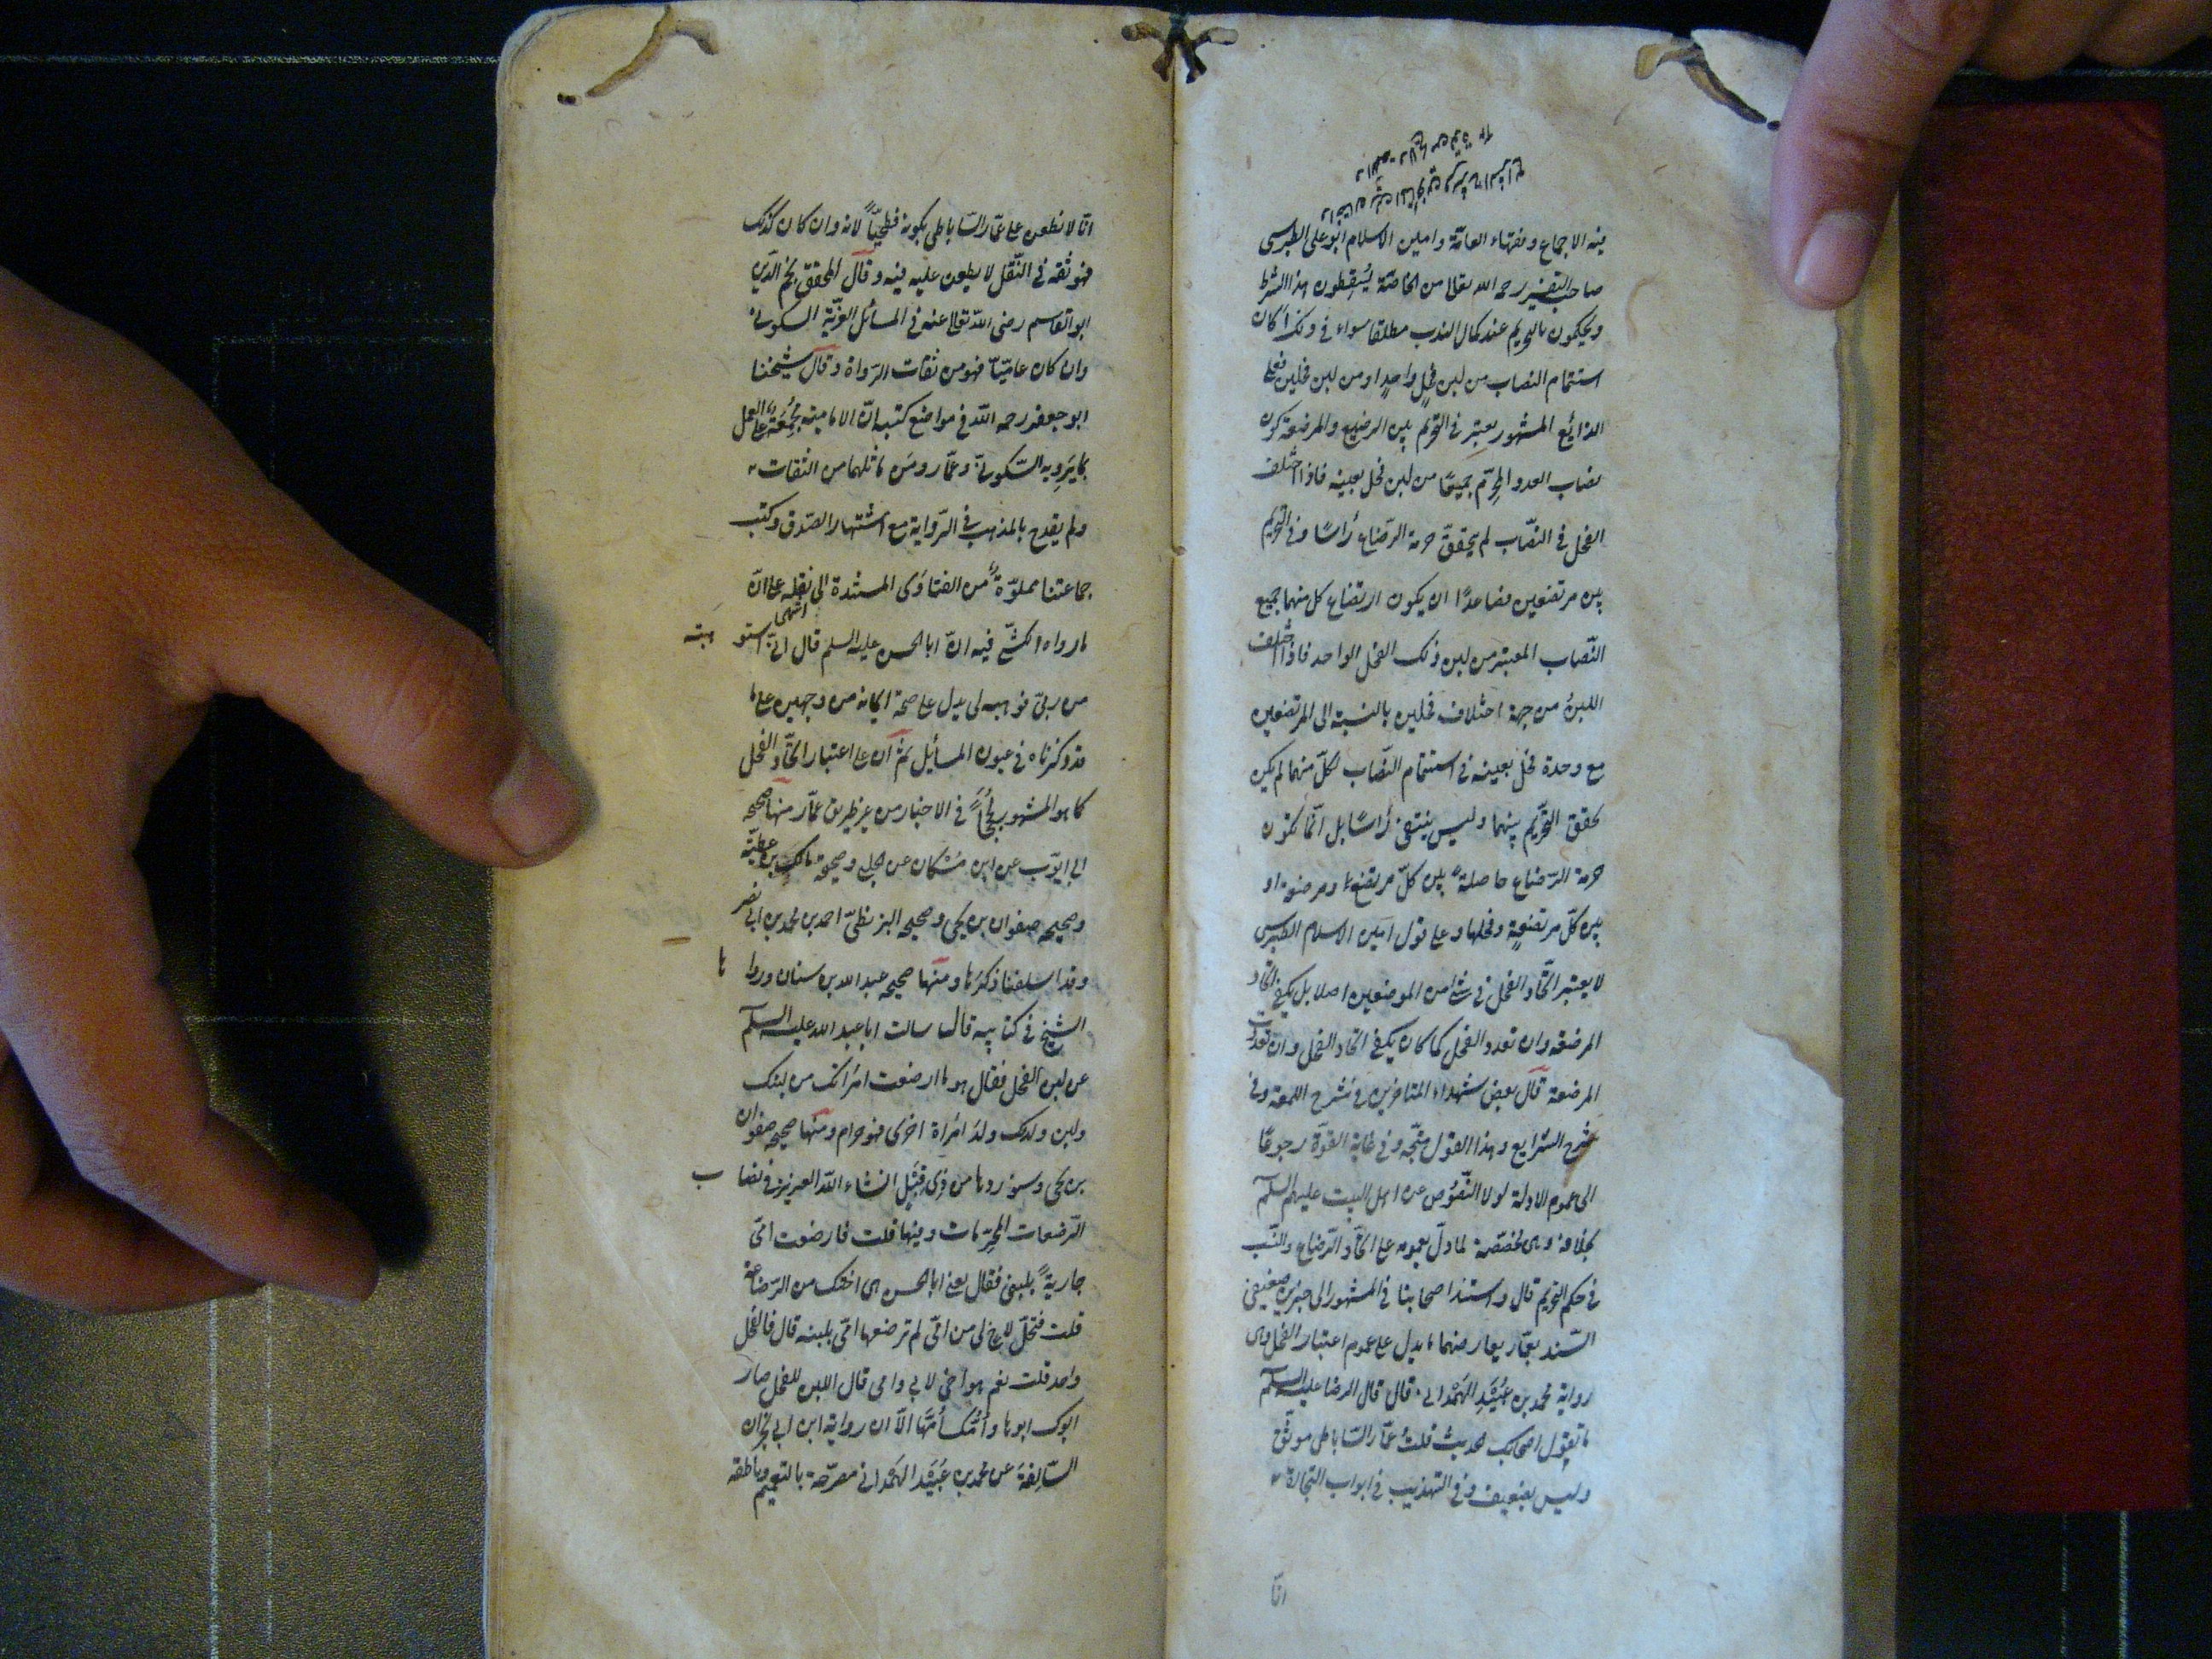 فيه الاجماع وفقهاء العامّة وامين الاسلام ابو على الطبرسى
صاحب التفسير رحمه الله تعالى من الخاصّة يُسقِطون هذا الشرط
ويحكمون بالتحريم عند كمال النصاب مطلقا سواء فى ذلك أكان
استتمام النصاب من لبن فحلٍ واحدٍ او من لبن فحلين فعلى
الذائع المشهور يعتبر فى التحريم بين الرضيع والمرضعة كون
نصاب العدد المحرّم جميعًا من لبن فحل بعينه فاذا اختلف
الفحل فى النصّاب لم يتحقق حرمة الرّضاع رأسًا وفى التحريم
بين مرتضعين فصاعدًا ان يكون ارتضاع كل منهما جميع
النّصاب المعتبر من لبن ذلك الفحل الواحد فاذا اختلف
اللبنُ من جهة اختلاف فحلين بالنسبة الى المرتضعين
مع وحدة فحل بعينه فى استتمام النّصاب لكلّ منهما لم يكن
تحقق التحريم بينهما وليس ينتفى رأسًا بل انّما تكون
حرمة الرّضاع حاصلةً بين كلّ مرتضع ومرضعة او
بين كلّ مرتضعةٍ وفحلها وعلى قول امين الاسلام الطبرسى
لا يعتبر اتّحاد الفحل فى شئ من الموضعين اصلا بل يكفى اتّحاد
المرضعة وان تعدد الفحل كما كان يكفى اتحاد الفحل وان تعددت
المرضعة قال بعض شهداء المتاخرين فى شرح اللمعة وفى
شرح الشرايع وهذا القول متّجه وفى غاية القوّة رجوعًا
الى عموم الادلة لولا النّصُوص عن اهل البيت عليهم السلم
بخلافه وهى مخصّصة لما دلّ بعمومه على اتّحاد الرّضاع والنّسب
فى حكم التحريم قال واستند اصحابنا فى المشهور الى خبرين ضعيفى
السّند بعمّار يعارضهما ما يدل على عموم اعتبار الفحل وهى
رواية محمد بن عُبَيدِ الهَمْدانى قال قال الرضا عليه السلم
ما تقول اصحابك الحديث قلتُ عمّار السّاباطى موثّق
وليس بضعيف وفى التهذيب فى ابواب التجارة
انّا
انّا لا نطعن على عمّار السّاباطى بكونه فطحيّاً لانه وان كان كذلك
فهو ثقه فى النّقل لا يطعن عليه فيه وقال المحقق نجم الدّين
ابو القاسم رضى اللّه تعالى عنه فى المسائل العزيّة السكونى
وان كان عاميّاً فهو من ثقات الرّواة وقال شيخنا
ابو جعفر رحمه اللّه فى مواضع كتبه انّ الامامية مُجْمِعَة على العمل
بما يَروِيه السّكونىّ وعمّار ومَن ماثلهما من الثقات
ولم يقدح بالمذهب فى الرّواية مع اشتهار الصّدق وكتب
جماعتنا مملوّةً من الفتاوى المسندة الى نقله على انّ
انتهى
ما رواه الكشّى فيه انّ ابا الحسن عليه السلم قال انّى استو هبته
من ربىّ فوهبه لى يدل على صحة ايمانه من وجهين على ما
قد ذكرناه فى عيون المسائل ثمّ ان على اعتبار اتّحاد الفحل
كما هو المشهور فى الاخبار من غير طريق عمّار منها صحيحه
ابى ايّوب عن ابن مُسْكان عن الحلبى وصحيحه مالك بن عطيّة
وصحيحه صفوان بن يحيى وصحيحه البزنطىّ احمد بن محمد بن ابى نصر
وقد اسلفنا ذكرَها ومنها صحيحه عبد الله بن سنان وروا ها
الشيخ فى كتابيه قال سالت ابا عبد الله عليه السلم
عن لبن الفحل فقال هو ما ارضعت امْرَاتك من لبنك
ولبن ولدك ولدَ امْرَاة اخرى فهو حرام ومنها صحيحه صفوان
بن يحيى وسنوردها من ذى قبَل انشاء اللّه العزيز فى نصا ب
الرّضعات المحرّمات وفيها قلت فارضعت امّى
جاريةً بلبنى فقال يعنى ابا الحسن هى اختك من الرّضاعة
قلت فتحلّ لاخ لى من امّى لم ترضعها امّى بلبنه قال فالفحل
واحد قلت نعم هو أخى لابى وامى قال اللبن للفحل صار
ابوك ابوها وأُمُّك أُمَّها الّا ان رواية ابن ابى نجران
السّالِفة عن محمد بن عُبَيْد الهَمْدانى مصرّحة بالتعميم وناطقه